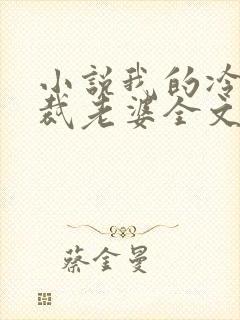 小说我的冷
裁老婆全文
蔡金曼